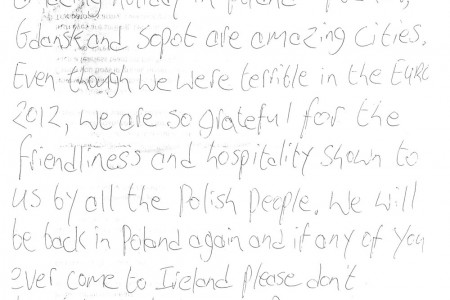 holiday in Poland
Gdansk and Sopot are amazing cities.
Even though we were terrible in the EURO
2012, we are so grateful for the
friendliness and hospitality shown to
us by all the Polish people. We will
be back in Poland again and if any of you
ever come to Ireland please don't